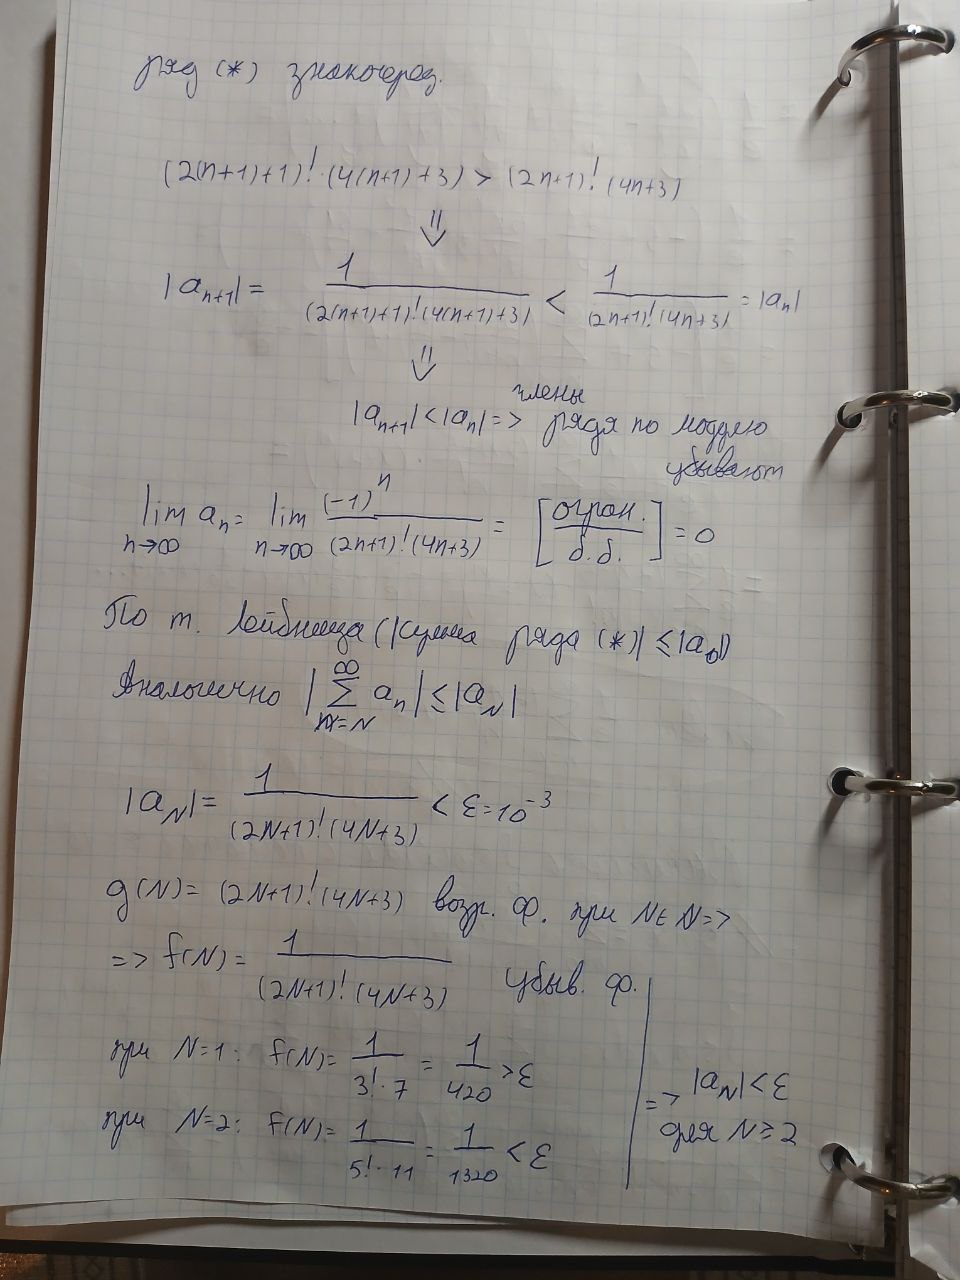 ряд (*) знакочеред.
(2(n+1)+1)! · (4(n+1)+3) > (2n+1)! (4n+3)
⇓
|aₙ₊₁| = 1/((2(n+1)+1)! (4(n+1)+3)) < 1/((2n+1)! (4n+3)) = |aₙ|
⇓
члены
|aₙ₊₁| < |aₙ| => ряда по модулю
убывают
lim aₙ = lim (-1)ⁿ/((2n+1)! (4n+3)) = [огран./б.б.] = 0
n→∞ n→∞
По т. Лейбница (|сумма ряда (*)| ≤ |a₀|)
Аналогично |∑ aₙ| ≤ |a_N|
∞
n=N
|a_N| = 1/((2N+1)! (4N+3)) < ε = 10⁻³
g(N) = (2N+1)! (4N+3) возр. ф. при N ∈ ℕ =>
=> f(N) = 1/((2N+1)! (4N+3)) убыв. ф.
при N=1: f(N) = 1/(3! · 7) = 1/420 > ε
при N=2: f(N) = 1/(5! · 11) = 1/1320 < ε
=> |a_N| < ε
для N ≥ 2